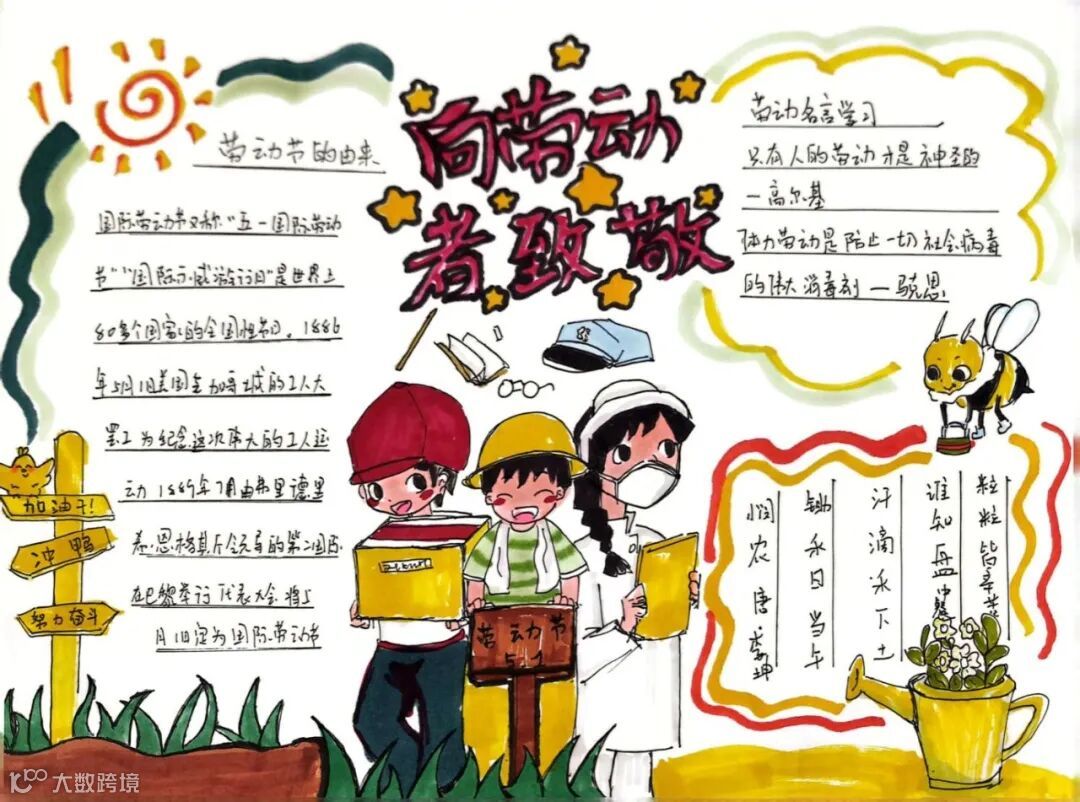 向劳动
者致敬
劳动节的由来
国际劳动节又称"五一国际劳动
节""国际示威游行日"是世界上
80多个国家的全国性节日。1886
年5月1日美国芝加哥城的工人大
罢工为纪念这次伟大的工人运
动1889年7月由弗里德里
希.恩格斯所领导的第二国际
在巴黎举行代表大会将5
月1日定为国际劳动节
加油干!
冲鸭
努力奋斗
劳动名言学习
只有人的劳动才是神圣的
—高尔基
体力劳动是防止一切社会病毒
的伟大消毒剂—马克思
悯农 唐·李绅
锄禾日当午
汗滴禾下土
谁知盘中餐
粒粒皆辛苦
劳动节
5.1
大数跨境